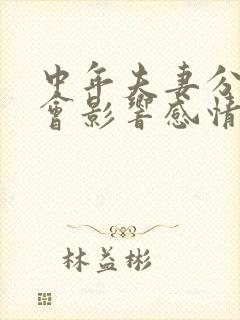 中年夫妻分
會影響感情
林益彬